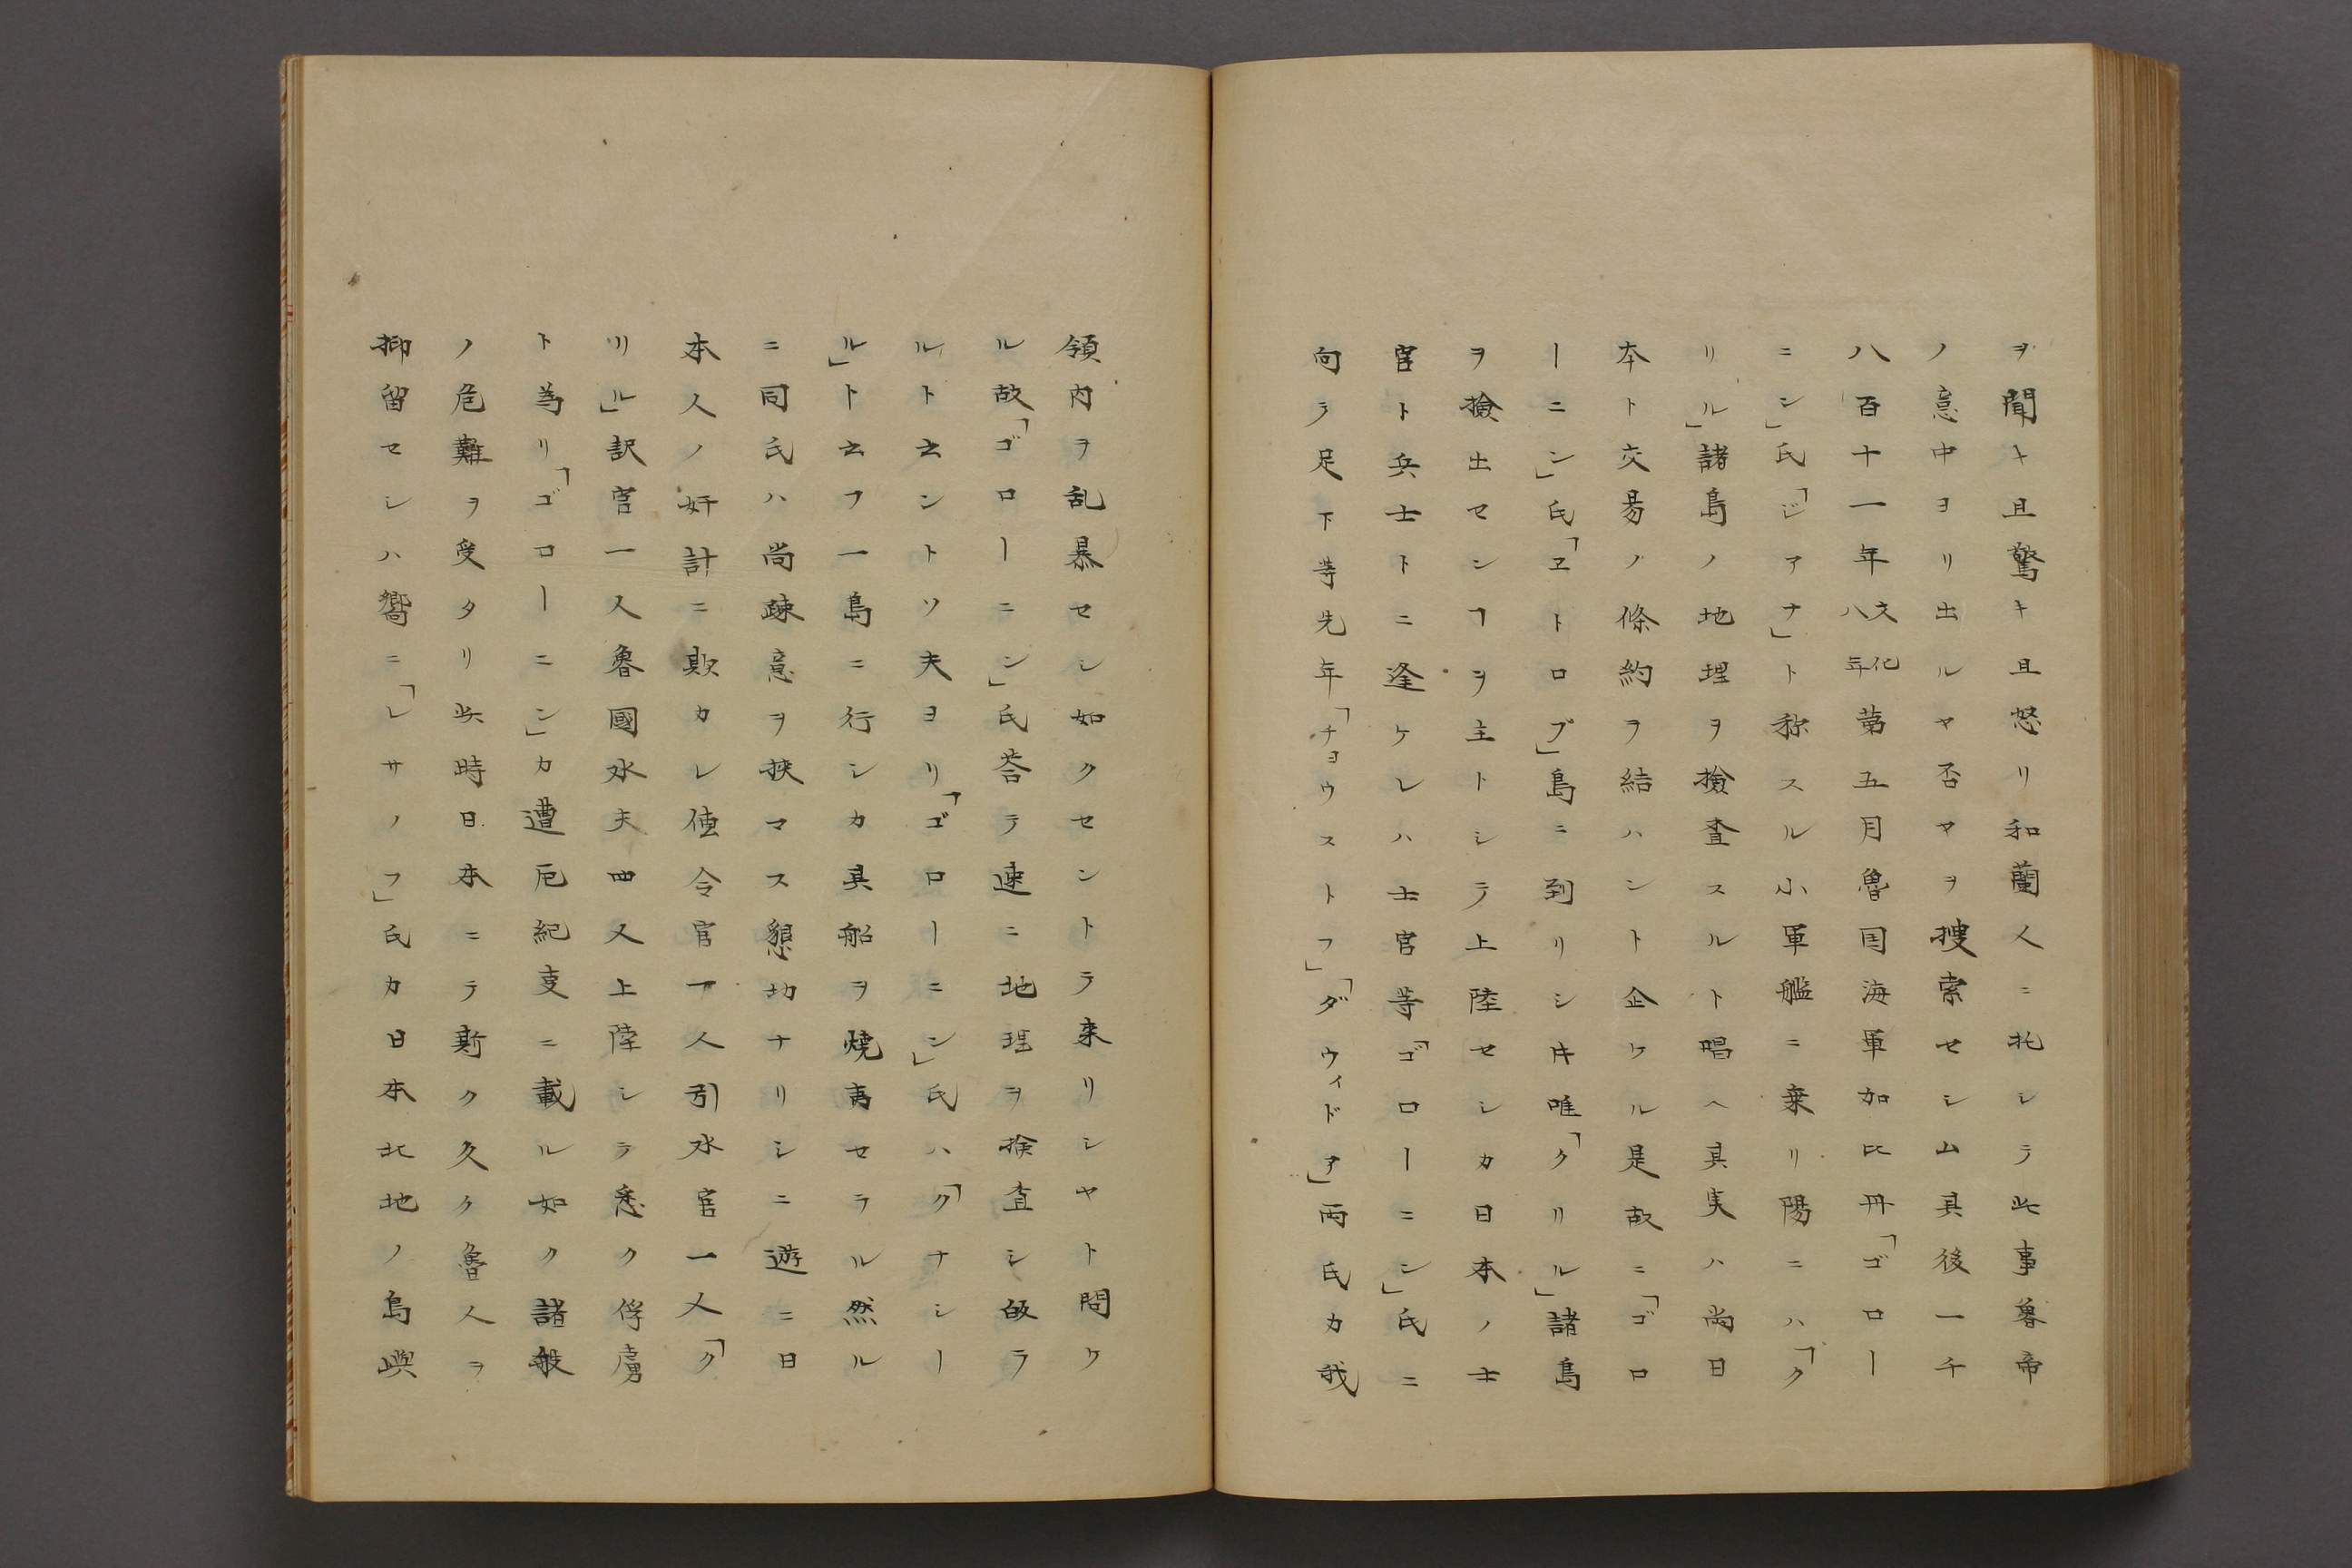 ヲ聞キ且驚キ且怒リ和蘭人ニ托シテ此事魯帝
ノ意中ヨリ出ルヤ否ヤヲ捜索セシム其後一千
八百十一年文化八年第五月魯国海軍加比丹「ゴロー
ニン」氏「ジアナ」ト称スル小軍艦ニ乗リ陽ニハ「ク
リル」諸島ノ地理ヲ撿査スルト唱ヘ其実ハ尚日
本ト交易ノ條約ヲ結ハント企ケル是故ニ「ゴロ
ーニン」氏「ヱトロプ」島ニ到リシ㐧唯「クリル」諸島
ヲ撿出センヿヲ主トシテ上陸セシカ日本ノ士
官ト兵士トニ逢ケレハ士官等「ゴローニン」氏ニ
向テ足下等先年「チョウストフ」「ダウィドア」両氏カ我
領内ヲ乱暴セシ如クセントテ来リシヤト問ケ
ル故「ゴローニン」氏荅テ速ニ地理ヲ撿査シ皈ラ
ルト云ントソ夫ヨリ「ゴローニン」氏ハ「クナシー
ル」ト云フ一島ニ行シカ其船ヲ焼毒セラル然ル
ニ同氏ハ尚疎意ヲ挾マス懇切ナリシニ遊ニ日
本人ノ奸計ニ欺カレ使令官一人引水官一人「ク
リル」訳官一人魯國水夫四人上陸シテ悉ク俘虜
ト為リ「ゴローニン」カ遭厄紀叓ニ載ル如ク諸般
ノ危難ヲ受タリ此時日本ニテ斯ク久ク魯人ヲ
抑留セシハ嚮ニ「レサノフ」氏カ日本北地ノ島嶼